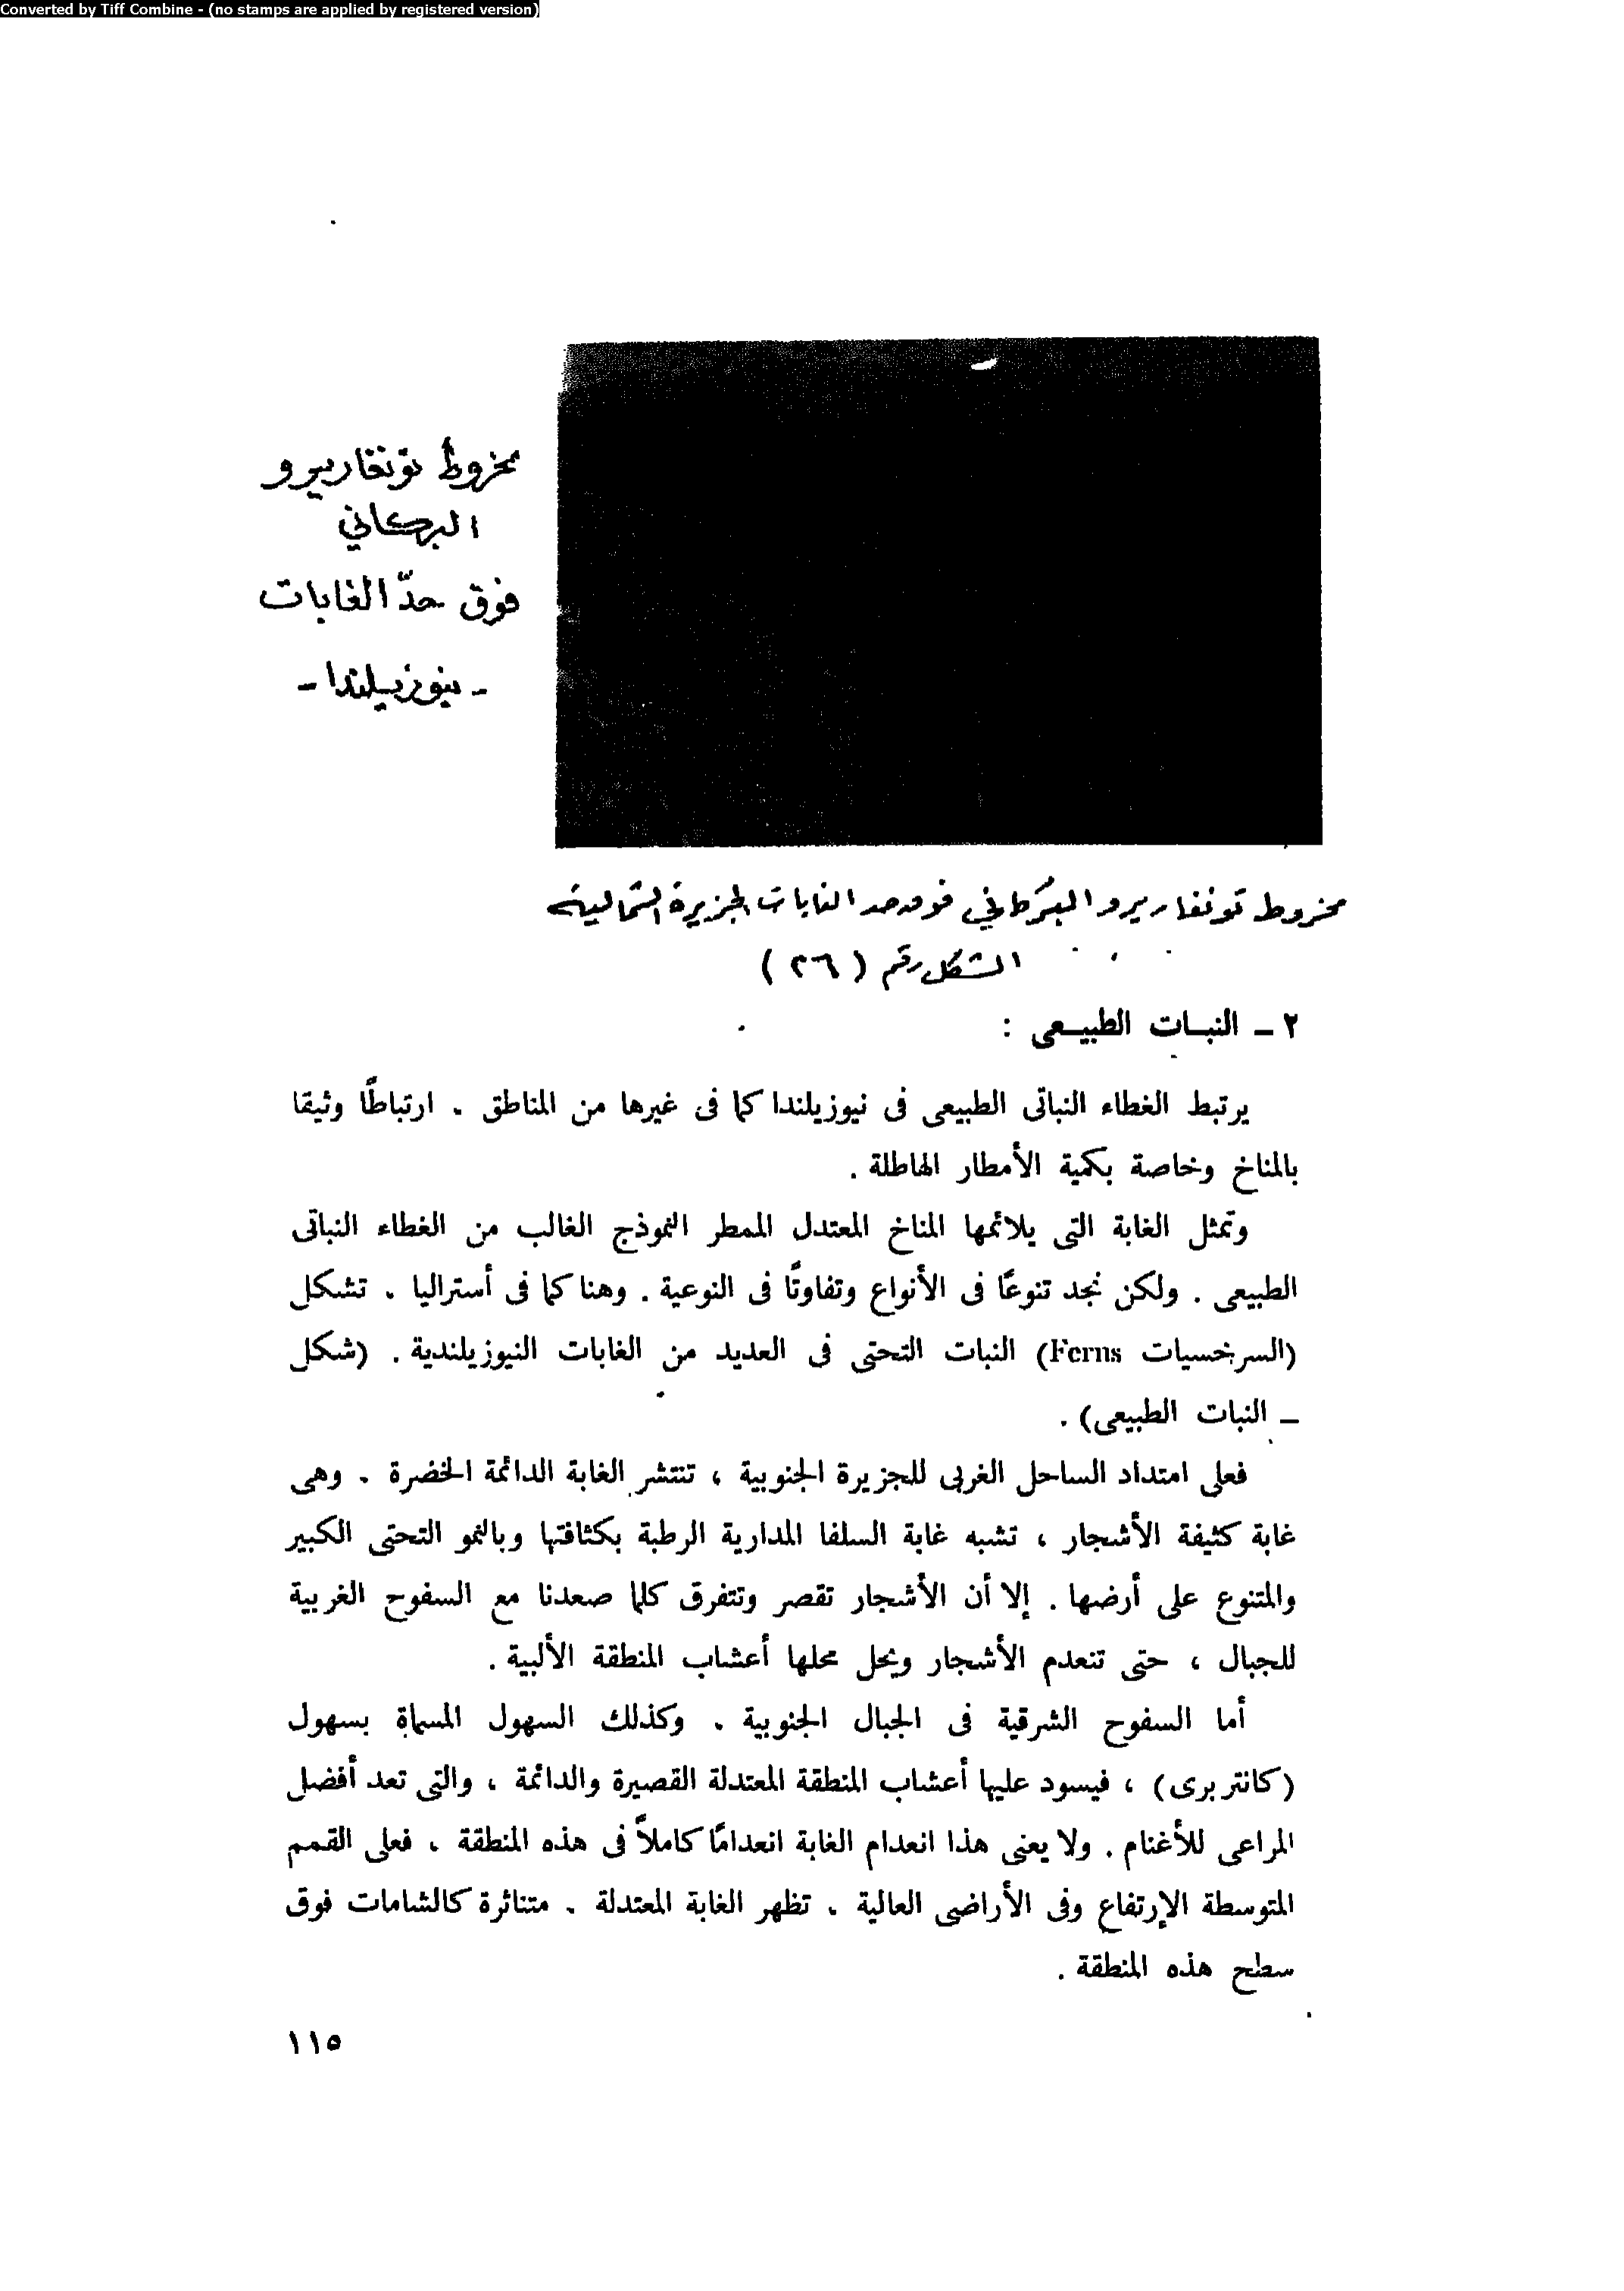 Converted by Tiff Combine - (no stamps are applied by registered version)
مخروط تونغاريرو
البركاني
فوق حدّ الغابات
- نيوزيلندا -
مخروط تونغاريرو البركاني فوق حد الغابات الجزيرة الشمالية
الشكل رقم (٢٦)
٢ - النبات الطبيعى :
يرتبط الغطاء النباتى الطبيعى فى نيوزيلندا كما فى غيرها من المناطق ، ارتباطًا وثيقا
بالمناخ وخاصة بكمية الأمطار الهاطلة .
وتمثل الغابة التى يلائمها المناخ المعتدل الممطر النموذج الغالب من الغطاء النباتى
الطبيعى . ولكن نجد تنوعًا فى الأنواع وتفاوتًا فى النوعية . وهنا كما فى أستراليا ، تشكل
(السرخسيات Ferns) النبات التحتى فى العديد من الغابات النيوزيلندية . (شكل
- النبات الطبيعى) .
فعلى امتداد الساحل الغربى للجزيرة الجنوبية ، تنتشر الغابة الدائمة الخضرة . وهى
غابة كثيفة الأشجار ، تشبه غابة السلفا المدارية الرطبة بكثافتها وبالنمو التحتى الكبير
والمتنوع على أرضها . إلا أن الأشجار تقصر وتتفرق كلما صعدنا مع السفوح الغربية
للجبال ، حتى تنعدم الأشجار ويحل محلها أعشاب المنطقة الألبية .
أما السفوح الشرقية فى الجبال الجنوبية . وكذلك السهول المسماة بسهول
(كانتربرى) ، فيسود عليها أعشاب المنطقة المعتدلة القصيرة والدائمة ، والتى تعد أفضل
المراعى للأغنام . ولا يعنى هذا انعدام الغابة انعدامًا كاملاً فى هذه المنطقة ، فعلى القمم
المتوسطة الإرتفاع وفى الأراضى العالية ، تظهر الغابة المعتدلة . متناثرة كالشامات فوق
سطح هذه المنطقة .
١١٥